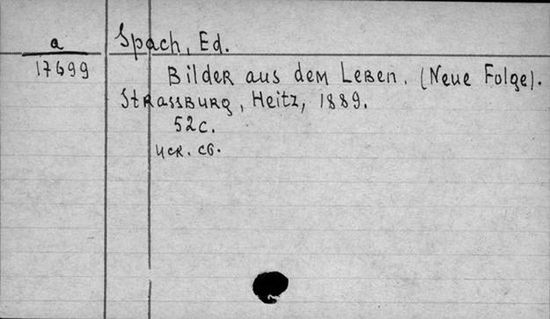 a
17699
Spach, Ed.
Bilder aus dem Leben. (Neue Folge).
Strassburg, Heitz, 1889.
52c.
иск. сб.